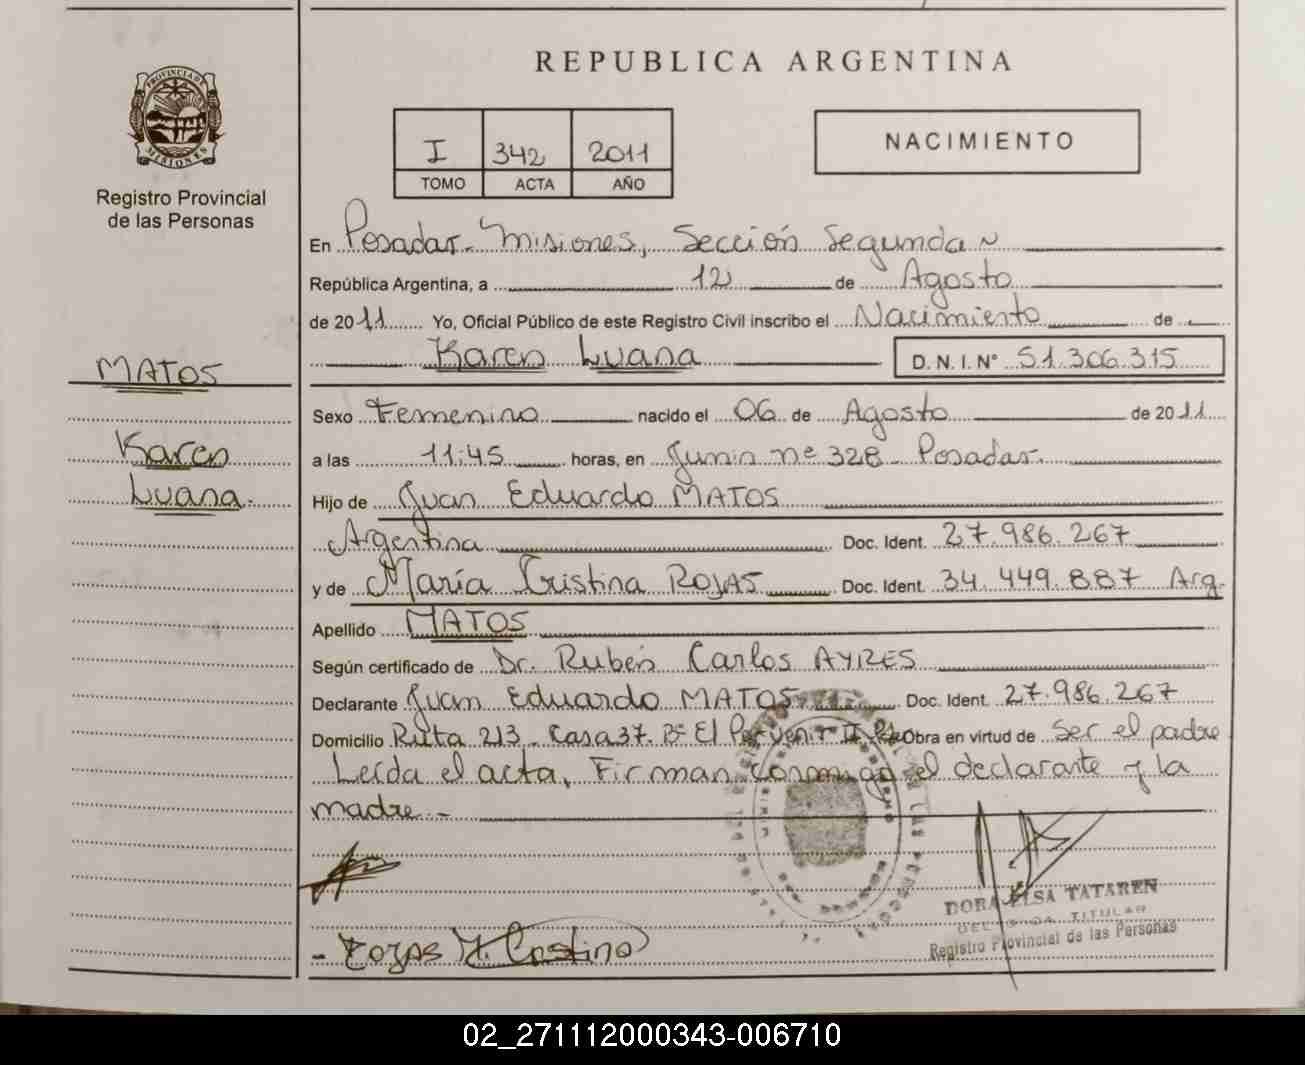 REPUBLICA ARGENTINA
PROVINCIA DE
MISIONES
Registro Provincial
de las Personas
I 342 2011
TOMO ACTA AÑO
NACIMIENTO
En Posadas - Misiones, Sección Segunda
República Argentina, a 12 de Agosto
de 2011 Yo, Oficial Público de este Registro Civil inscribo el Nacimiento de
Karen Luana D.N.I. N° 51.306.315
MATOS
Karen
Luana.
Sexo Femenino nacido el 06 de Agosto de 2011
a las 11:45 horas, en Junin nº 328 - Posadas.
Hijo de Juan Eduardo MATOS
Argentina Doc. Ident. 27.986.267
y de María Cristina ROJAS Doc. Ident. 34.449.887 Arg.
Apellido MATOS
Según certificado de Dr. Rubén Carlos AYRES
Declarante Juan Eduardo MATOS Doc. Ident. 27.986.267
Domicilio Ruta 213 - Casa 37. Bº El Porvenir II Obra en virtud de ser el padre
Leída el acta, Firman conmigo el declarante y la
madre. -
DORA ELSA TATAREN
TITULAR
Registro Provincial de las Personas
- Rojas M. Cristina
02_271112000343-006710